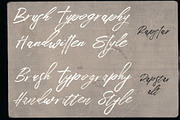 Brush Typography
Handwritten Style
Rapstar
Brush typography
Handwritten Style
Rapstar
alt